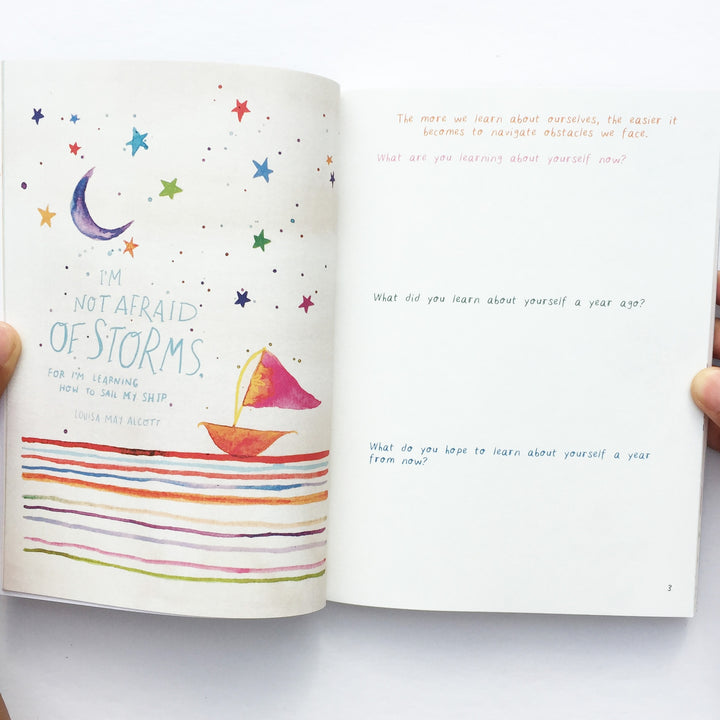 I'M
NOT AFRAID
OF STORMS,
FOR I'M LEARNING
HOW TO SAIL MY SHIP.
LOUISA MAY ALCOTT
The more we learn about ourselves, the easier it
becomes to navigate obstacles we face.
What are you learning about yourself now?
What did you learn about yourself a year ago?
What do you hope to learn about yourself a year
from now?
3